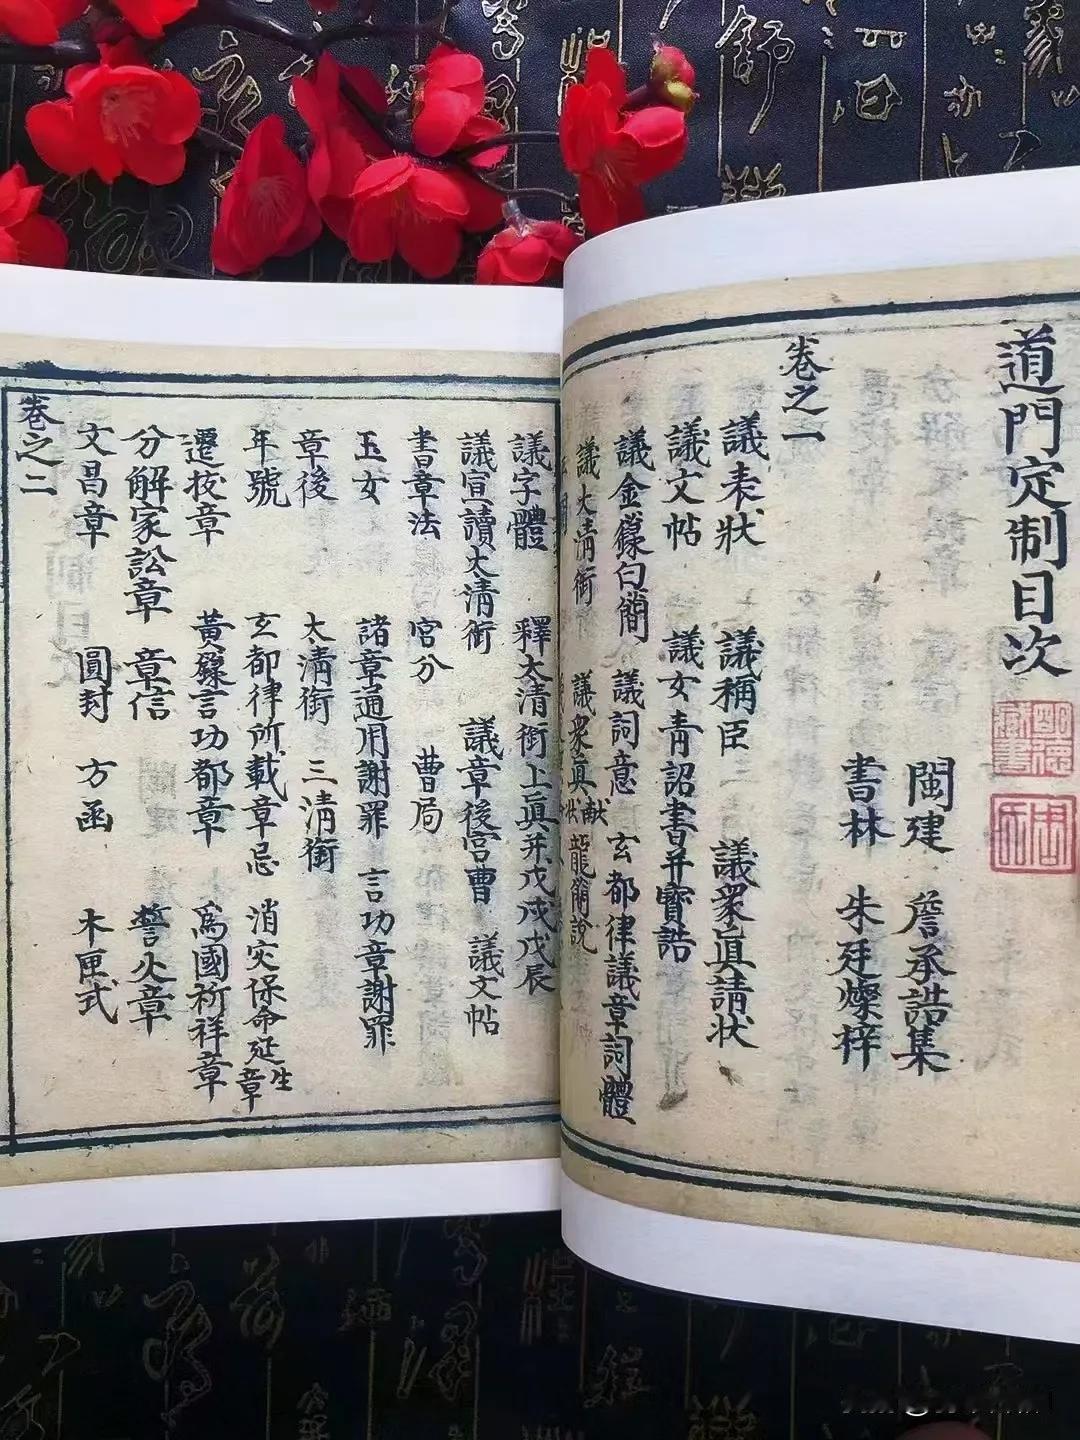 道門定制目次
閩建 詹承誥集
書林 朱廷燦梓
卷之一
議表狀 議稱臣 議衆眞請狀
議文帖 議女青詔書并寳誥
議金籙白簡 議詞意 玄都律議章詞體
議大清銜 議衆眞献狀 龍簡說
議字體 釋太清銜上眞并戊戌戊辰
議宣讀太清銜 議章後宮曹 議文帖
書章法 宮分 曹局
玉女 諸章通用謝罪 言功章謝罪
章後 太清銜 三清銜
年號 玄都律所載章忌 消灾保命延生章
遷拔章 黃籙言功都章 爲國祈祥章
分解家訟章 章信 誓火章
文昌章 圓封 方函 木匣式
卷之二